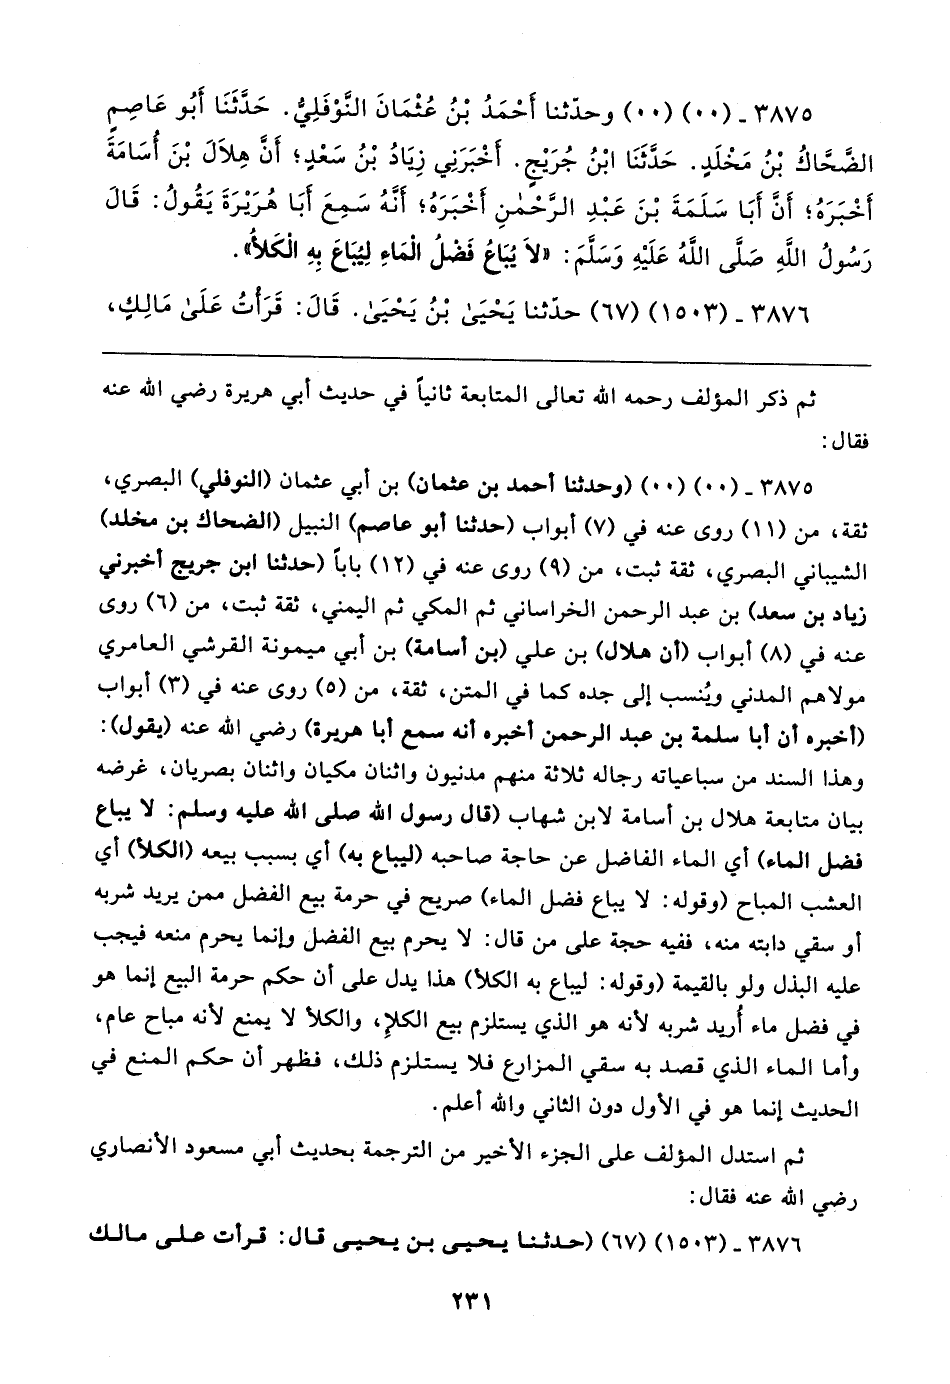 ٣٨٧٥ ـ (٠٠) (٠٠) وحدّثنا أَحْمَدُ بْنُ عُثْمَانَ النَّوْفَلِيُّ. حَدَّثَنَا أَبُو عَاصِمٍ
الضَّحَّاكُ بْنُ مَخْلَدٍ. حَدَّثَنَا ابْنُ جُرَيْجٍ. أَخْبَرَنِي زِيَادُ بْنُ سَعْدٍ؛ أَنَّ هِلاَلَ بْنَ أُسَامَةَ
أَخْبَرَهُ؛ أَنَّ أَبَا سَلَمَةَ بْنَ عَبْدِ الرَّحْمٰنِ أَخْبَرَهُ؛ أَنَّهُ سَمِعَ أَبَا هُرَيْرَةَ يَقُولُ: قَالَ
رَسُولُ اللَّهِ صَلَّى اللَّهُ عَلَيْهِ وَسَلَّمَ: «لاَ يُبَاعُ فَضْلُ الْمَاءِ لِيُبَاعَ بِهِ الْكَلأُ».
٣٨٧٦ ـ (١٥٠٣) (٦٧) حدّثنا يَحْيَىٰ بْنُ يَحْيَىٰ. قَالَ: قَرَأْتُ عَلَىٰ مَالِكٍ،
ثم ذكر المؤلف رحمه الله تعالى المتابعة ثانياً في حديث أبي هريرة رضي الله عنه
فقال:
٣٨٧٥ ـ (٠٠) (٠٠) (وحدثنا أحمد بن عثمان) بن أبي عثمان (النوفلي) البصري،
ثقة، من (١١) روى عنه في (٧) أبواب (حدثنا أبو عاصم) النبيل (الضحاك بن مخلد)
الشيباني البصري، ثقة ثبت، من (٩) روى عنه في (١٢) باباً (حدثنا ابن جريج أخبرني
زياد بن سعد) بن عبد الرحمن الخراساني ثم المكي ثم اليمني، ثقة ثبت، من (٦) روى
عنه في (٨) أبواب (أن هلال) بن علي (بن أسامة) بن أبي ميمونة القرشي العامري
مولاهم المدني ويُنسب إلى جده كما في المتن، ثقة، من (٥) روى عنه في (٣) أبواب
(أخبره أن أبا سلمة بن عبد الرحمن أخبره أنه سمع أبا هريرة) رضي الله عنه (يقول):
وهذا السند من سباعياته رجاله ثلاثة منهم مدنيون واثنان مكيان واثنان بصريان، غرضه
بيان متابعة هلال بن أسامة لابن شهاب (قال رسول الله صلى الله عليه وسلم: لا يباع
فضل الماء) أي الماء الفاضل عن حاجة صاحبه (ليباع به) أي بسبب بيعه (الكلأ) أي
العشب المباح (وقوله: لا يباع فضل الماء) صريح في حرمة بيع الفضل ممن يريد شربه
أو سقي دابته منه، ففيه حجة على من قال: لا يحرم بيع الفضل وإنما يحرم منعه فيجب
عليه البذل ولو بالقيمة (وقوله: ليباع به الكلأ) هذا يدل على أن حكم حرمة البيع إنما هو
في فضل ماء أُريد شربه لأنه هو الذي يستلزم بيع الكلإ، والكلأ لا يمنع لأنه مباح عام،
وأما الماء الذي قصد به سقي المزارع فلا يستلزم ذلك، فظهر أن حكم المنع في
الحديث إنما هو في الأول دون الثاني والله أعلم.
ثم استدل المؤلف على الجزء الأخير من الترجمة بحديث أبي مسعود الأنصاري
رضي الله عنه فقال:
٣٨٧٦ ـ (١٥٠٣) (٦٧) (حدثنا يحيى بن يحيى قال: قرأت على مالك
٢٣١